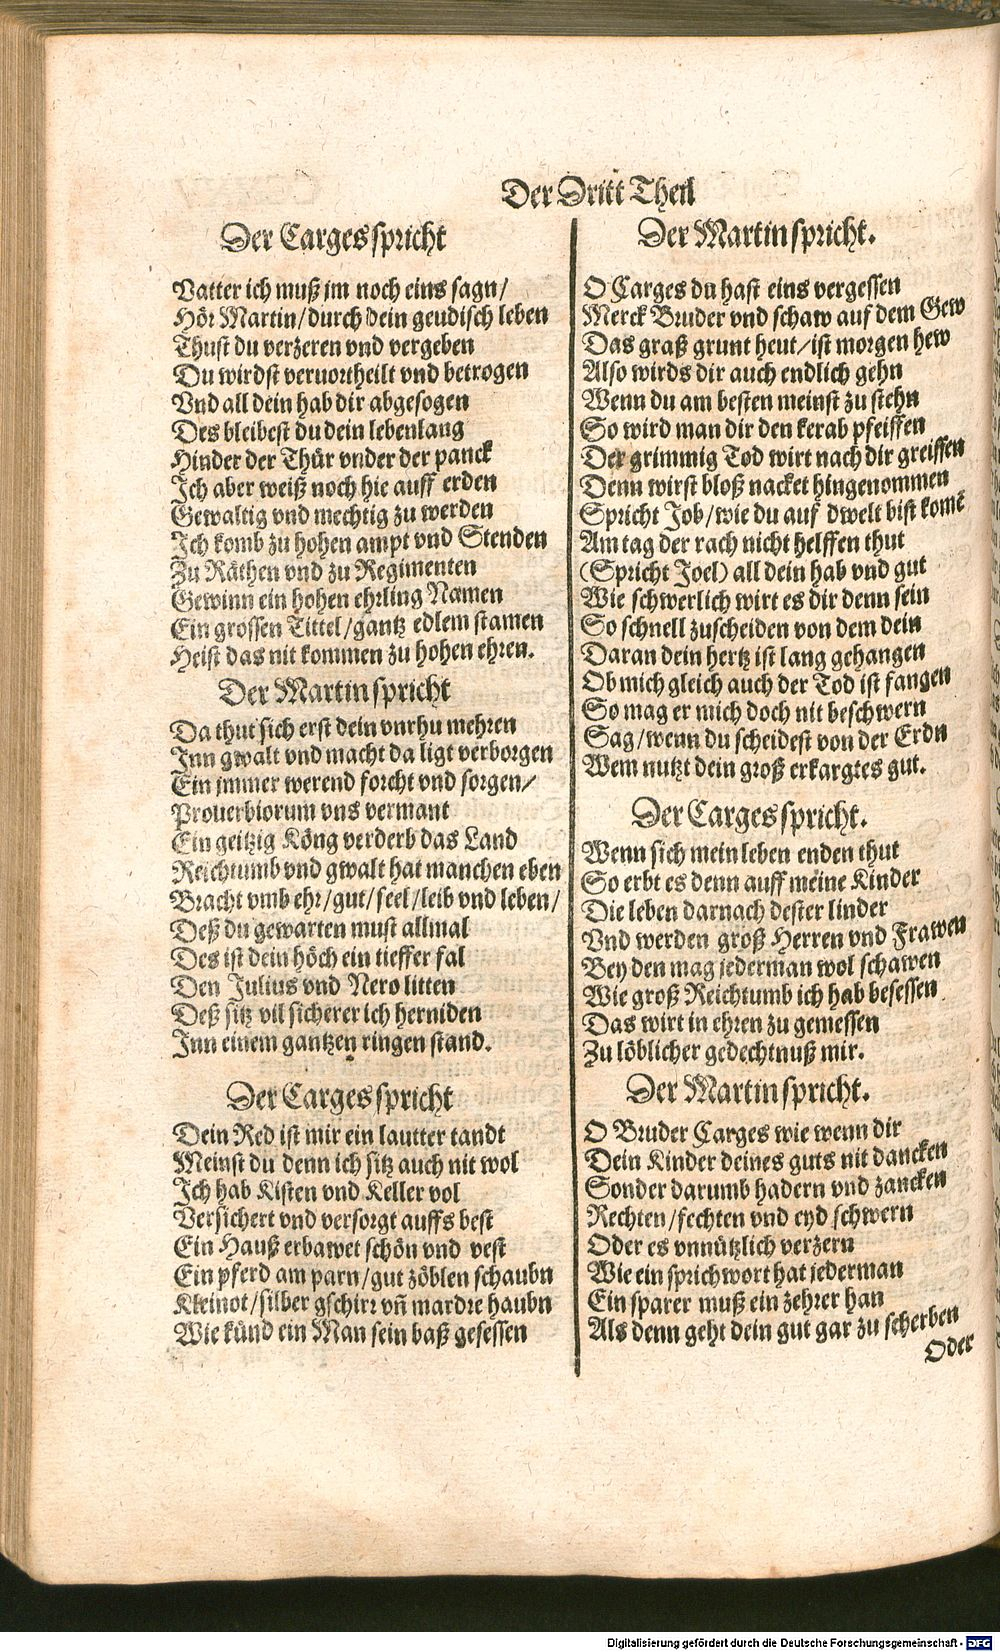 Der Dritt Theil
Der Carges spricht
Vatter ich muß jm noch eins sagn/
Hör Martin/durch dein geudisch leben
Thust du verzeren vnd vergeben
Du wirdst veruortheilt vnd betrogen
Vnd all dein hab dir abgesogen
Des bleibest du dein lebenlang
Hinder der Thür vnder der panck
Ich aber weiß noch hie auff erden
Gewaltig vnd mechtig zu werden
Ich komb zu hohen ampt vnd Stenden
Zu Räthen vnd zu Regimenten
Gewinn ein hohen ehrling Namen
Ein grossen Tittel/gantz edlem stamen
Heist das nit kommen zu hohen ehren.
Der Martin spricht
Da thut sich erst dein vnrhu mehren
Inn gwalt vnd macht da ligt verborgen
Ein jmmer werend forcht vnd sorgen/
Prouerbiorum vns vermant
Ein geitzig Köng verderb das Land
Reichtumb vnd gwalt hat manchen eben
Bracht vmb ehr/gut/seel/leib vnd leben/
Deß du gewarten must allmal
Des ist dein höch ein tieffer fal
Den Julius vnd Nero litten
Deß sitz vil sicherer ich herniden
Inn einem gantzen ringen stand.
Der Carges spricht
Dein Red ist mir ein lautter tandt
Meinst du denn ich sitz auch nit wol
Ich hab Kisten vnd Keller vol
Versichert vnd versorgt auffs best
Ein Hauß erbawet schön vnd vest
Ein pferd am parn/gut zöblen schaubn
Kleinot/silber gschirr vñ mardre haubn
Wie künd ein Man sein baß gesessen
Der Martin spricht.
O Carges du hast eins vergessen
Merck Bruder vnd schaw auf dem Gew
Das graß grunt heut/ist morgen hew
Also wirds dir auch endlich gehn
Wenn du am besten meinst zu stehn
So wird man dir den kerab pfeiffen
Der grimmig Tod wirt nach dir greiffen
Denn wirst bloß nacket hingenommen
Spricht Job/wie du auf dwelt bist komē
Am tag der rach nicht helffen thut
(Spricht Joel) all dein hab vnd gut
Wie schwerlich wirt es dir denn sein
So schnell zuscheiden von dem dein
Daran dein hertz ist lang gehangen
Ob mich gleich auch der Tod ist fangen
So mag er mich doch nit beschwern
Sag/wenn du scheidest von der Erdn
Wem nutzt dein groß erkargtes gut.
Der Carges spricht.
Wenn sich mein leben enden thut
So erbt es denn auff meine Kinder
Die leben darnach dester linder
Vnd werden groß Herren vnd Frawen
Bey den mag jederman wol schawen
Wie groß Reichtumb ich hab besessen
Das wirt in ehren zu gemessen
Zu löblicher gedechtnuß mir.
Der Martin spricht.
O Bruder Carges wie wenn dir
Dein Kinder deines guts nit dancken
Sonder darumb hadern vnd zancken
Rechten/fechten vnd eyd schwern
Oder es vnnützlich verzern
Wie ein sprichwort hat jederman
Ein sparer muß ein zehrer han
Als denn geht dein gut gar zu scherben
Oder
Digitalisierung gefördert durch die Deutsche Forschungsgemeinschaft - DFG